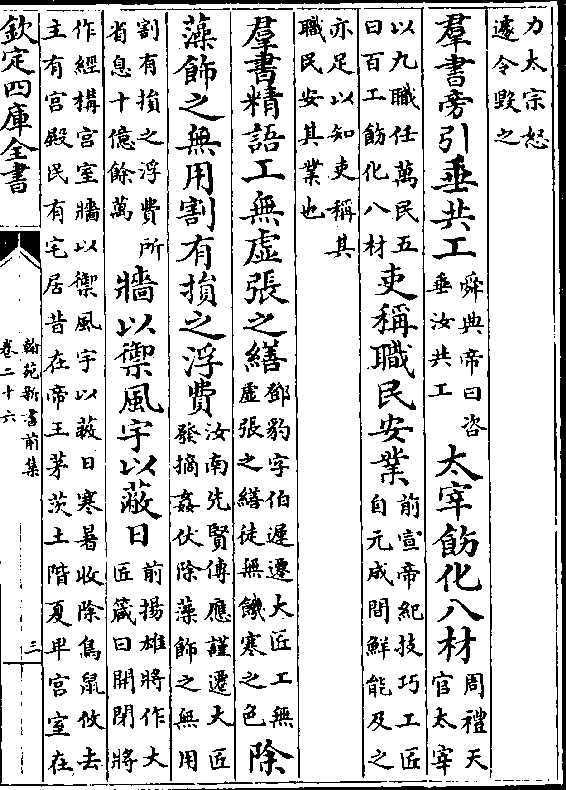 力太宗怒
遽令毀之
羣書旁引垂共工舜典帝曰咨
垂汝共工太宰飭化八材周禮天
官太宰
以九職任萬民五
曰百工飭化八材吏稱職民安業前宣帝紀技巧工匠
自元成間鮮能及之
亦足以知吏稱其
職民安其業也
羣書精語工無虛張之繕鄧豹字伯遲遷大匠工無
虛張之繕徒無饑寒之色除
藻飾之無用割有損之浮費汝南先賢傳應謹遷大匠
發摘姦伏除藻飾之無用
割有損之浮費所
省息十億餘萬牆以禦風宇以蔽日前揚雄將作大
匠箴曰開閉將
作經構宮室牆以禦風宇以蔽日寒暑收除鳥鼠攸去
主有宮殿民有宅居昔在帝王茅茨土階夏卑宮室在
欽定四庫全書
翰苑新書前集
卷二十六
三